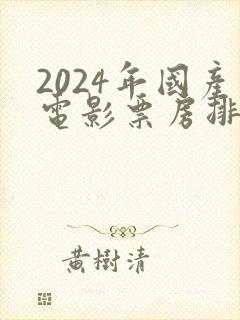 2024年國產
電影票房排
黃樹清